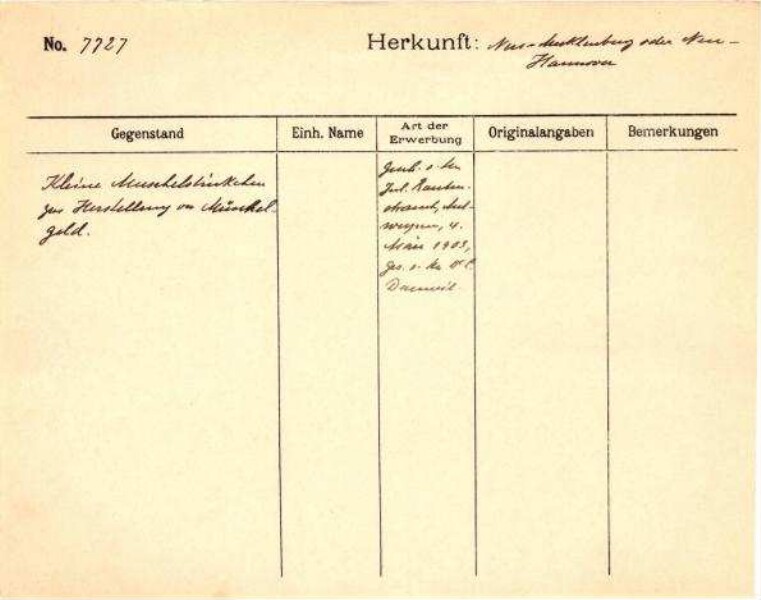 No. 7727
Herkunft: Neu-Mecklenburg oder Neu-
Hannover
Gegenstand
Einh. Name
Art der
Erwerbung
Originalangaben
Bemerkungen
Kleine Muschelstückchen
zur Herstellung von Muschel-
geld.
Gesch. v. Hrn
Jul. Rauten-
strauch, Ant-
werpen, 4.
März 1903,
ges. v. Hrn